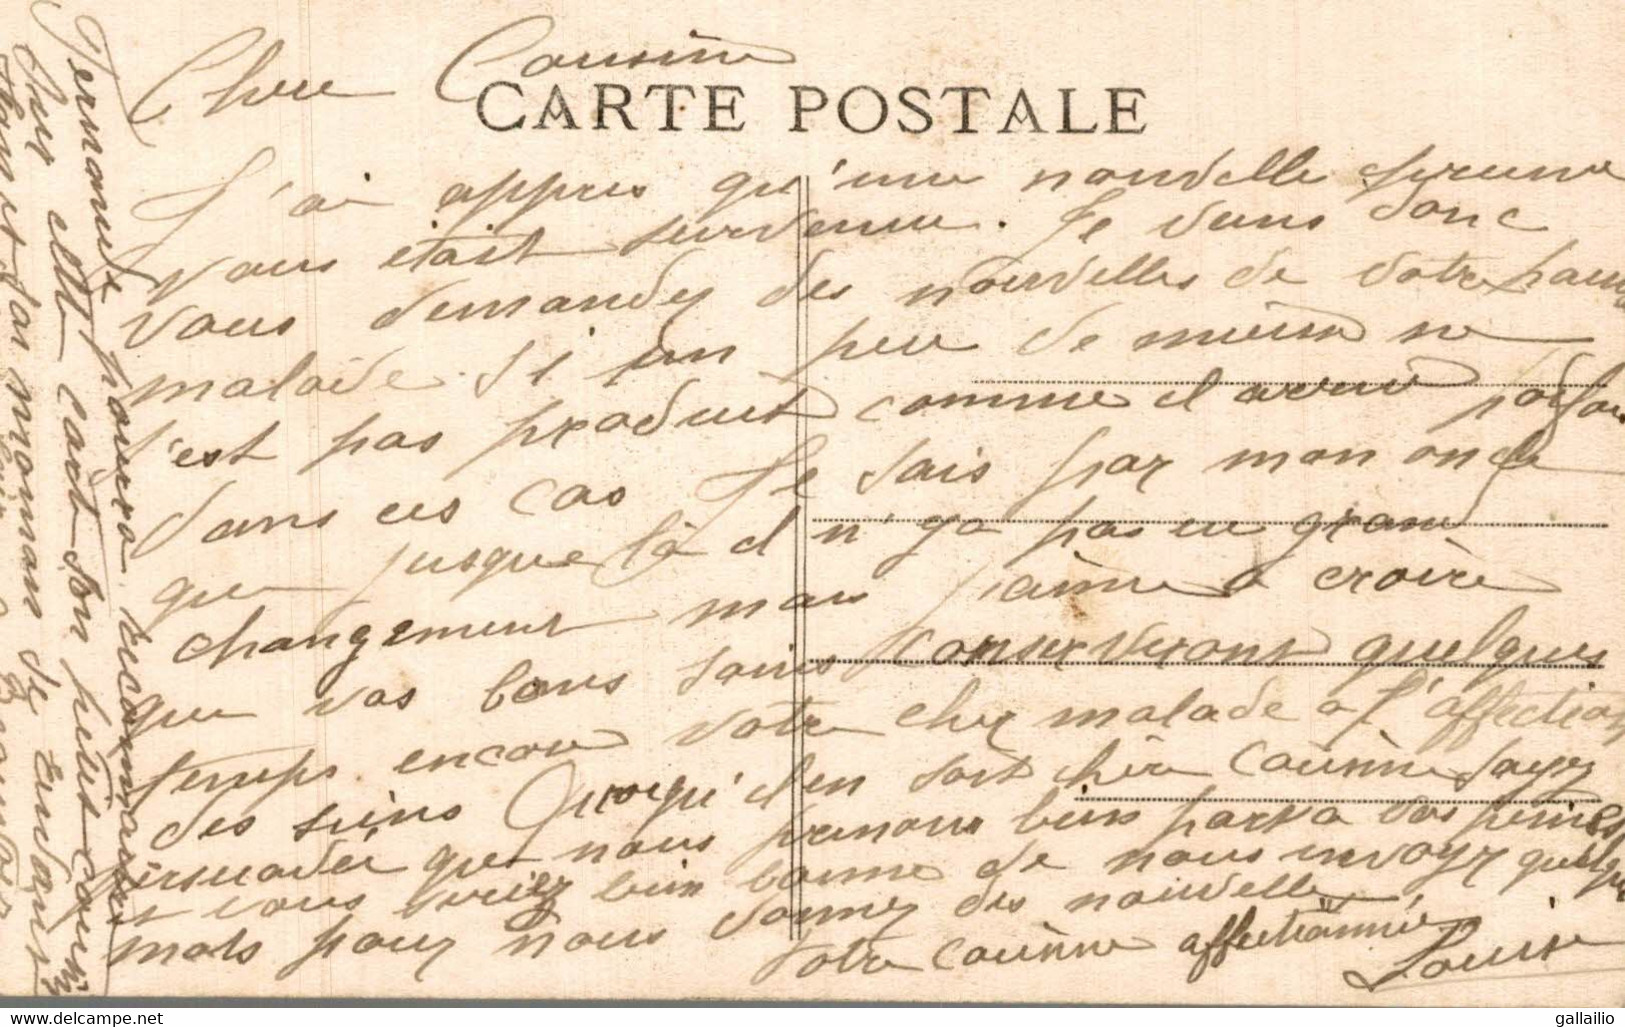 Chere Cousine
CARTE POSTALE
J'ai appris qu'une nouvelle
vous était survenue. Je viens donc
vous demandez des nouvelles de votre
malade. Si un peu de mieux ne
s'est pas produit comme il arrive parfois
dans ces cas Je sais par mon oncle
que jusque là il n'ya pas eu grand
changement mais j'aime a croire
que vos bons soins conserverons quelques
temps encore votre cher malade a l'affection
des siens Quoiqu'il en soit chère cousine soyez
persuadée que nous prenons bien part a vos peines
et vous seriez bien bonne de nous envoyz quelque
mots pour nous donnez des nouvelle
Votre cousine affectionnée
Louise
Fernande pourra reconnaitre
sur elle cart son petit cousin
et sa maman de
gallailio
delcampe.net